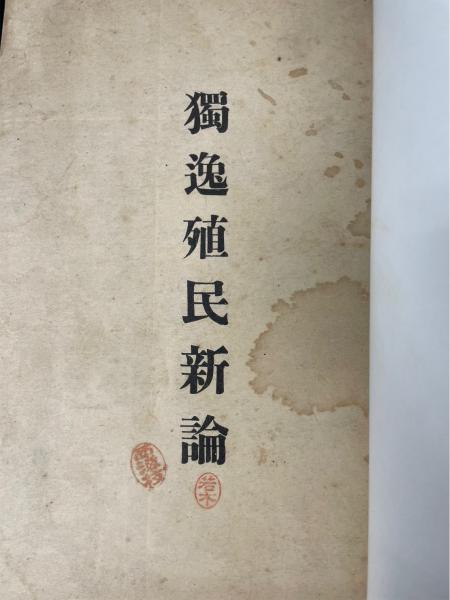 獨逸殖民新論
若木